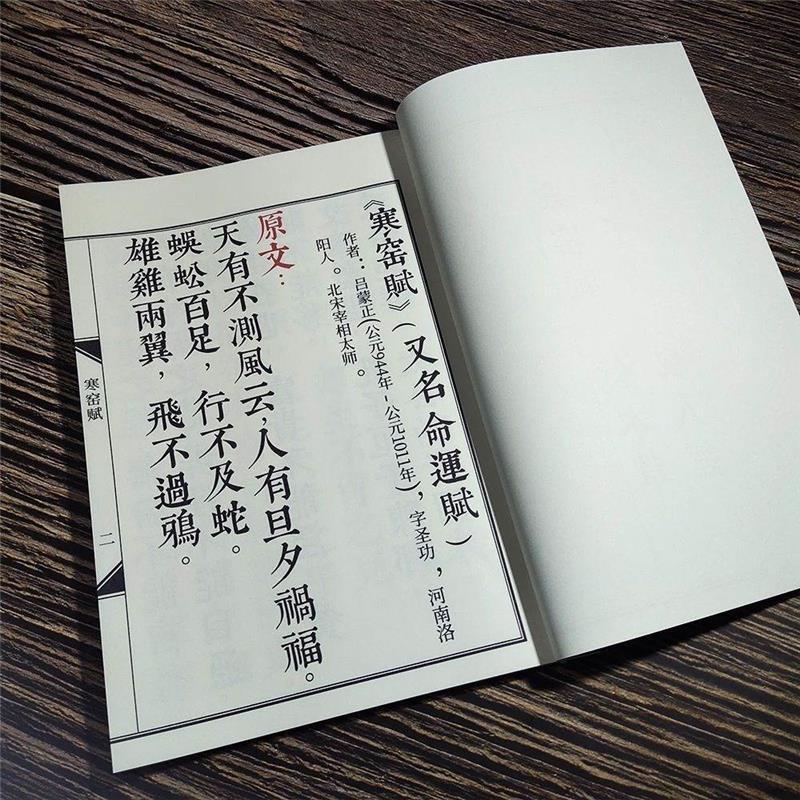 《寒窑赋》（又名 命運賦）
作者：吕蒙正(公元944年-公元1011年)，字圣功，河南洛
阳人。北宋宰相太师。
原文：
天有不測風云，人有旦夕禍福。
蜈蚣百足，行不及蛇。
雄雞兩翼，飛不過鴉。
寒窑赋
二